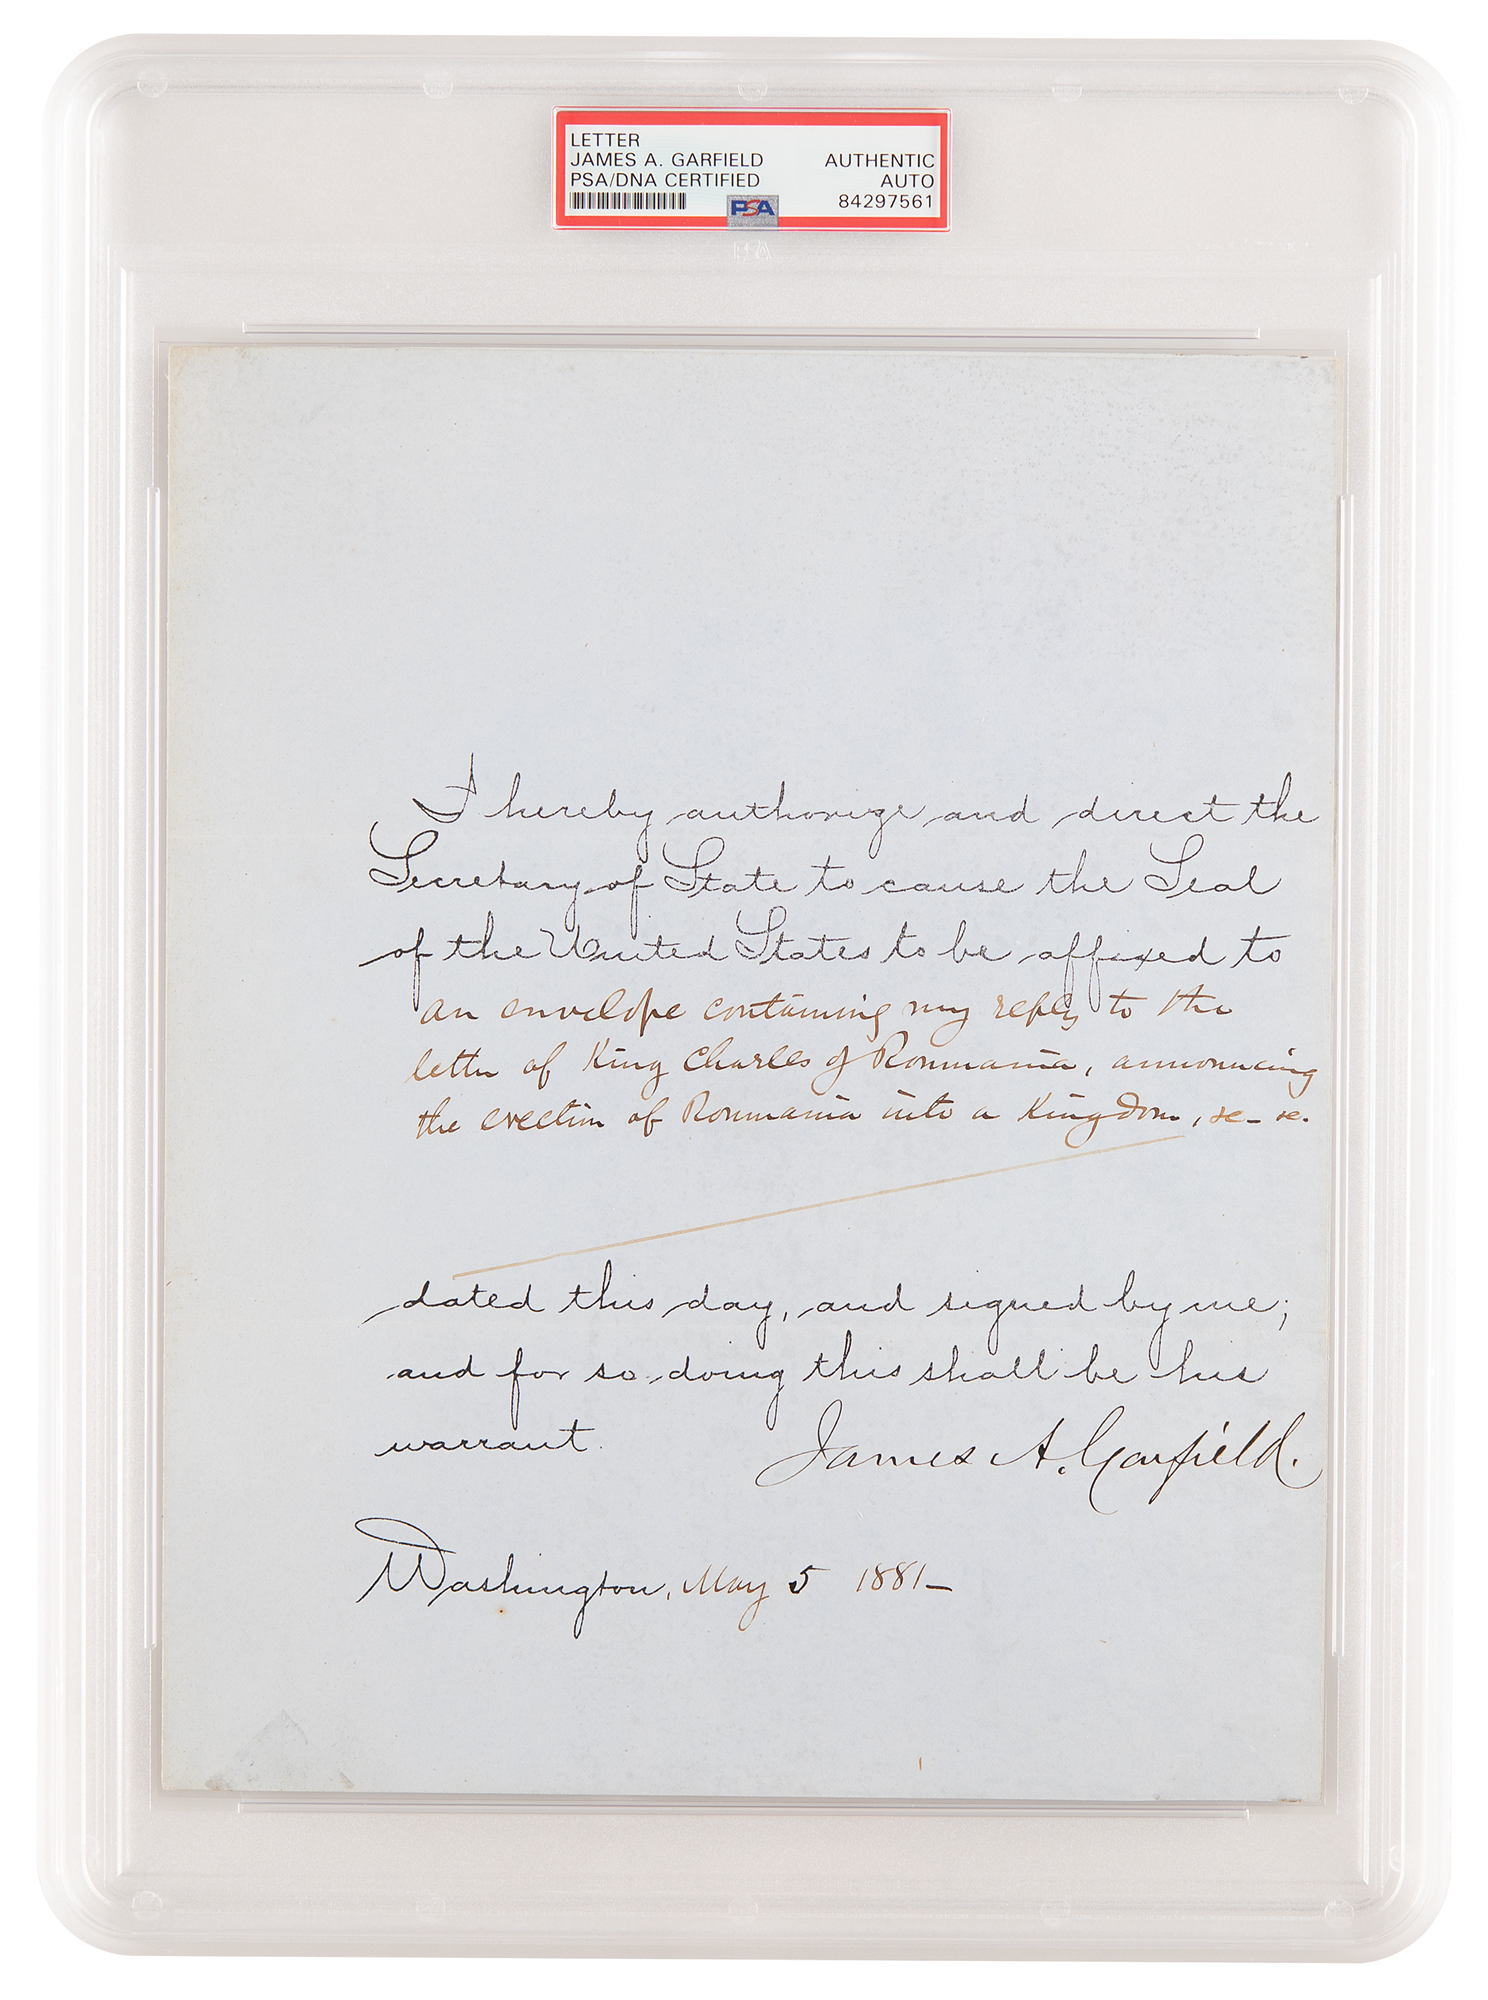 LETTER
JAMES A. GARFIELD AUTHENTIC
PSA/DNA CERTIFIED AUTO
PSA 84297561
I hereby authorize and direct the
Secretary of State to cause the Seal
of the United States to be affixed to
an envelope containing my reply to the
letter of King Charles of Roumania, announcing
the erection of Roumania into a Kingdom, &c- &c.
dated this day, and signed by me;
and for so doing this shall be his
warrant.
James A. Garfield.
Washington, May 5 1881-